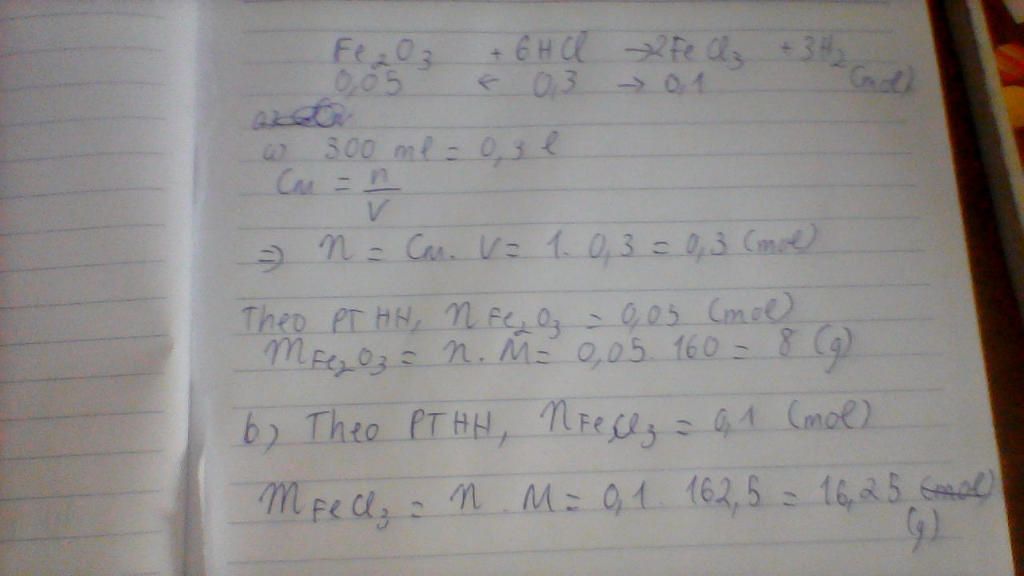 Fe₂O₃ + 6HCl → 2FeCl₃ + 3H₂
0,05 ← 0,3 → 0,1 (mol)
a) 300 ml = 0,3 l
CM = n/V
⇒ n = CM. V = 1. 0,3 = 0,3 (mol)
Theo PTHH, nFe₂O₃ = 0,05 (mol)
mFe₂O₃ = n. M = 0,05. 160 = 8 (g)
b) Theo PTHH, nFeCl₃ = 0,1 (mol)
mFeCl₃ = n. M = 0,1. 162,5 = 16,25 (mol)
(g)